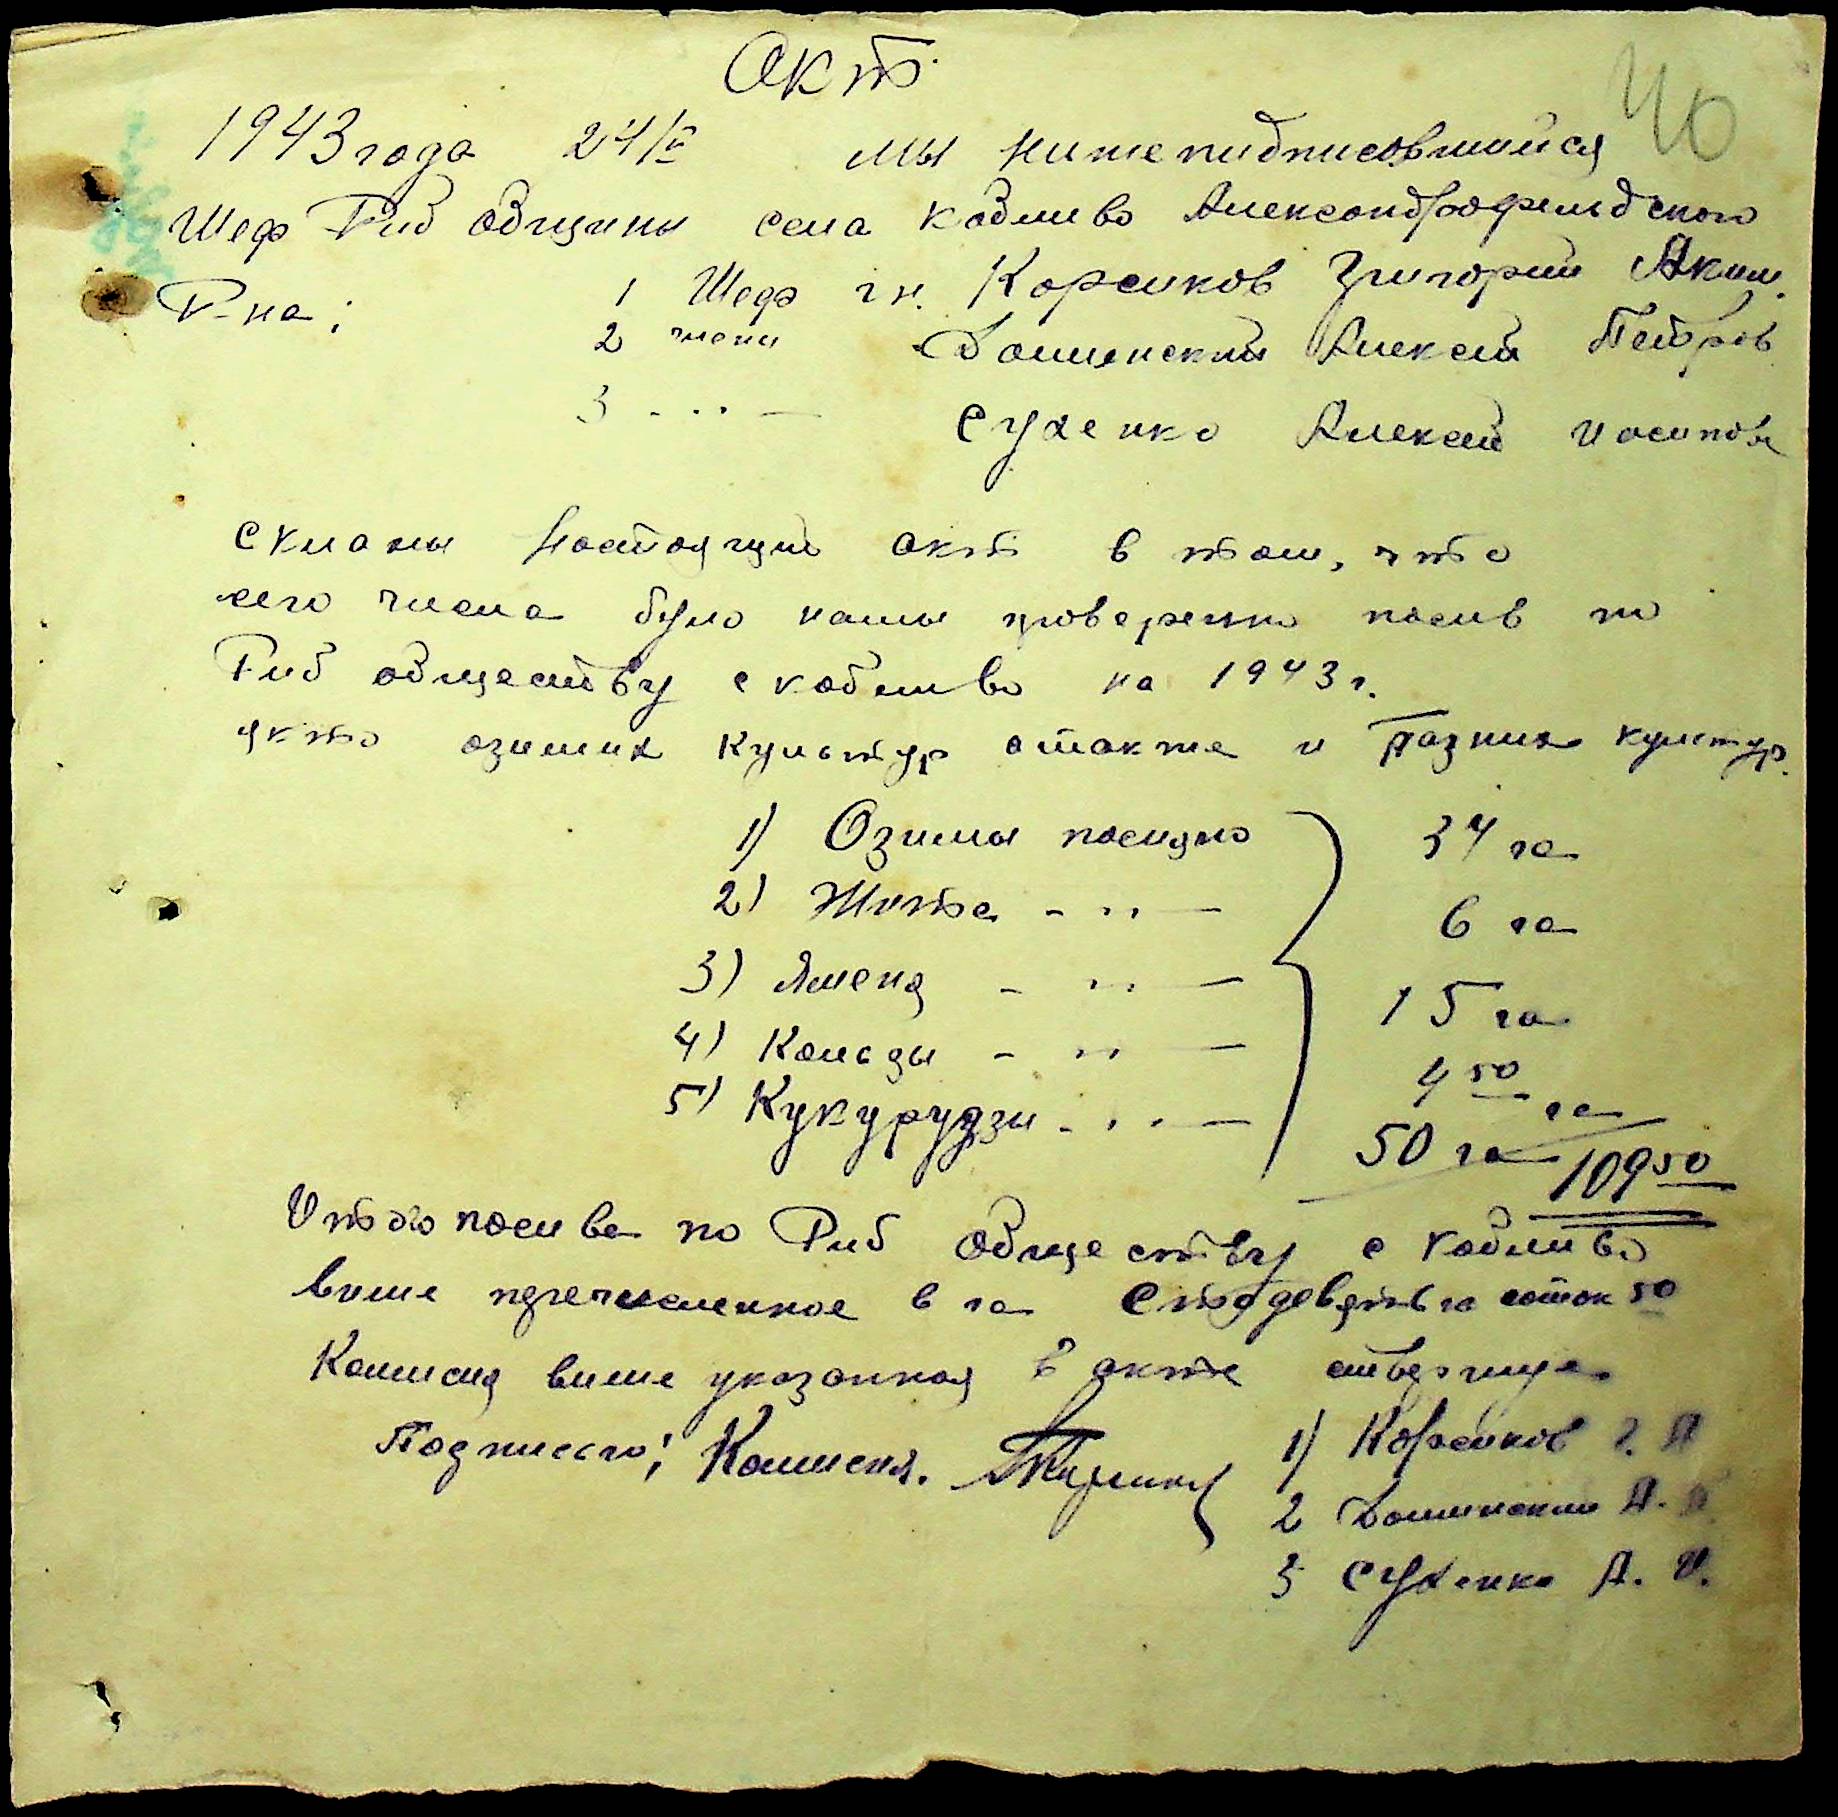 Акт
40
1943 года 24/V мы нижепидписавшийся
Шеф Риб общины села Коблиево Александрофельдского
Р-на: 1 Шеф гн. Корсиков Григорий Аким.
2 члени Доминский Алексей Петров
3 - " - Сухенко Алексей иосипов
склали настоящий акт в том, что
сего числа було нами проверенно посив по
Риб обществу с коблиево на 1943 г.
якто озимих культур атакже и разних культур.
1) Озимы посияно 34 га
2) Жита - " - 6 га
3) Яменя - " - 15 га
4) Кользы - " - 4 50 га
5) Кукурудзы - " - 50 га
109 50
Итого посива по Риб обществу с Коблиево
више перечисленное в га Стодевять га соток 50
Комисия више указанная в акте
Подписью: Комисия. 1) Корсиков Г. А
2 Доминский А. П.
3 Сухенко А. И.